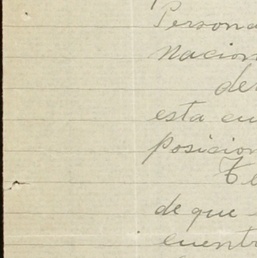 Persona
nacion
de
esta cu
posicion
Te
de que
cuentr